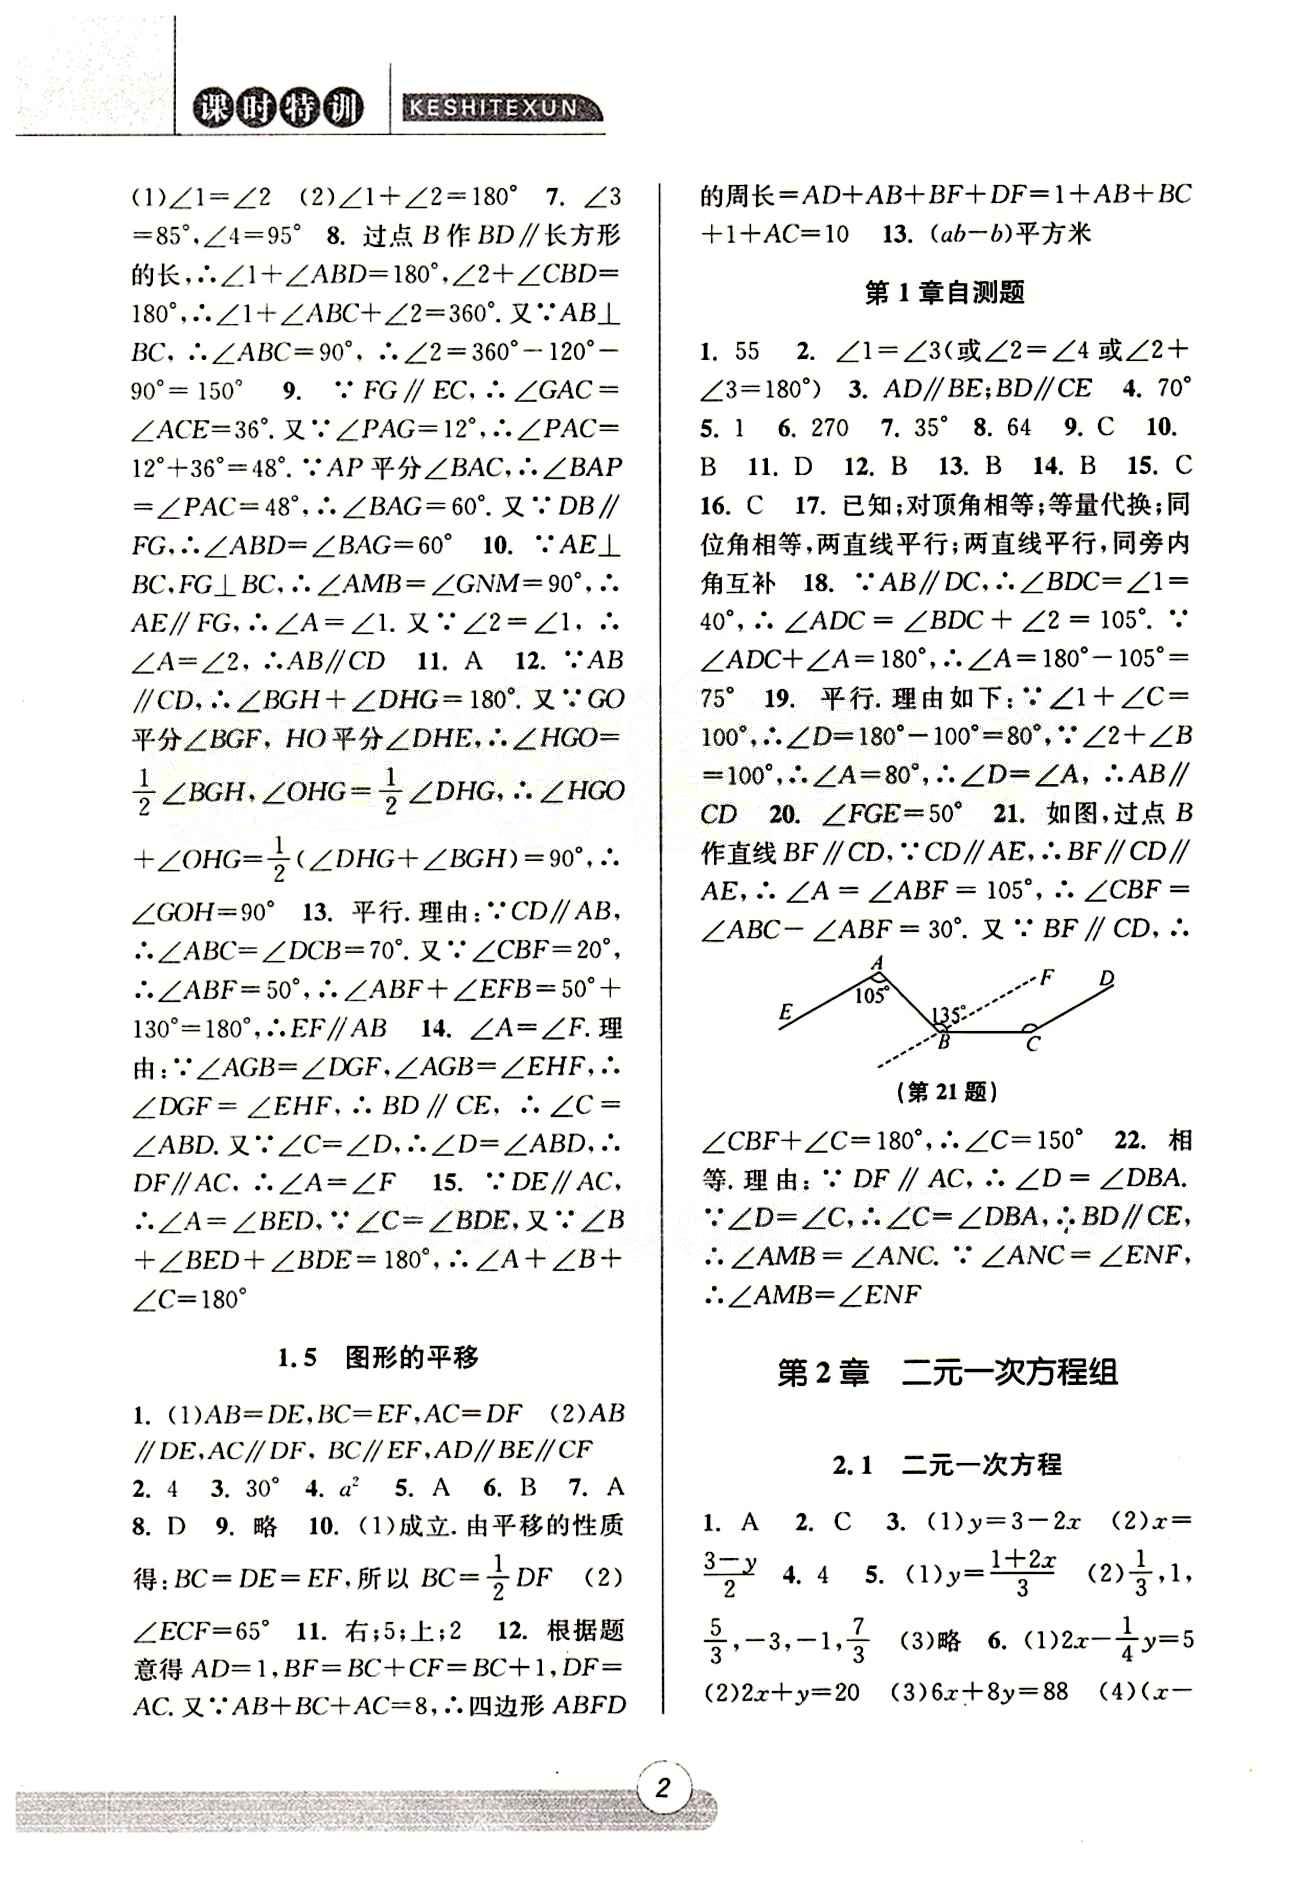 课时特训 KESHITEXUN
(1)∠1=∠2 (2)∠1+∠2=180° 7. ∠3
=85°,∠4=95° 8. 过点 B 作 BD∥长方形
的长,∴∠1+∠ABD=180°,∠2+∠CBD=
180°,∴∠1+∠ABC+∠2=360°. 又∵AB⊥
BC, ∴∠ABC=90°, ∴∠2=360°-120°-
90°=150° 9. ∵FG∥EC,∴∠GAC=
∠ACE=36°. 又∵∠PAG=12°,∴∠PAC=
12°+36°=48°. ∵AP 平分∠BAC,∴∠BAP
=∠PAC=48°,∴∠BAG=60°. 又∵DB∥
FG,∴∠ABD=∠BAG=60° 10. ∵AE⊥
BC,FG⊥BC,∴∠AMB=∠GNM=90°,∴
AE∥FG,∴∠A=∠1. 又∵∠2=∠1, ∴
∠A=∠2, ∴AB∥CD 11. A 12. ∵AB
∥CD,∴∠BGH+∠DHG=180°. 又∵GO
平分∠BGF, HO平分∠DHE,∴∠HGO=
1/2∠BGH,∠OHG=1/2∠DHG,∴∠HGO
+∠OHG=1/2(∠DHG+∠BGH)=90°,∴
∠GOH=90° 13. 平行. 理由:∵CD∥AB,
∴∠ABC=∠DCB=70°. 又∵∠CBF=20°,
∴∠ABF=50°,∴∠ABF+∠EFB=50°+
130°=180°,∴EF∥AB 14. ∠A=∠F. 理
由:∵∠AGB=∠DGF,∠AGB=∠EHF,∴
∠DGF=∠EHF,∴BD∥CE, ∴∠C=
∠ABD. 又∵∠C=∠D,∴∠D=∠ABD,∴
DF∥AC, ∴∠A=∠F 15. ∵DE∥AC,
∴∠A=∠BED,∵∠C=∠BDE,又∵∠B
+∠BED+∠BDE=180°,∴∠A+∠B+
∠C=180°
1.5 图形的平移
1. (1)AB=DE,BC=EF,AC=DF (2)AB
∥DE,AC∥DF, BC∥EF,AD∥BE∥CF
2. 4 3. 30° 4. a² 5. A 6. B 7. A
8. D 9. 略 10. (1)成立. 由平移的性质
得:BC=DE=EF,所以 BC=1/2DF (2)
∠ECF=65° 11. 右;5;上;2 12. 根据题
意得 AD=1,BF=BC+CF=BC+1,DF=
AC. 又∵AB+BC+AC=8,∴四边形 ABFD
的周长=AD+AB+BF+DF=1+AB+BC
+1+AC=10 13. (ab-b)平方米
第 1 章自测题
1. 55 2. ∠1=∠3(或∠2=∠4 或∠2+
∠3=180°) 3. AD∥BE;BD∥CE 4. 70°
5. 1 6. 270 7. 35° 8. 64 9. C 10.
B 11. D 12. B 13. B 14. B 15. C
16. C 17. 已知;对顶角相等;等量代换;同
位角相等,两直线平行;两直线平行,同旁内
角互补 18. ∵AB∥DC,∴∠BDC=∠1=
40°,∴∠ADC=∠BDC+∠2=105°. ∵
∠ADC+∠A=180°,∴∠A=180°-105°=
75° 19. 平行. 理由如下:∵∠1+∠C=
100°,∴∠D=180°-100°=80°,∵∠2+∠B
=100°,∴∠A=80°,∴∠D=∠A, ∴AB∥
CD 20. ∠FGE=50° 21. 如图,过点 B
作直线 BF∥CD,∵CD∥AE,∴BF∥CD∥
AE,∴∠A=∠ABF=105°,∴∠CBF=
∠ABC-∠ABF=30°. 又∵BF∥CD,∴
A
105°
F
D
E
135°
B
C
(第 21 题)
∠CBF+∠C=180°,∴∠C=150° 22. 相
等. 理由:∵DF∥AC,∴∠D=∠DBA.
∵∠D=∠C,∴∠C=∠DBA,∴BD∥CE,
∴∠AMB=∠ANC. ∵∠ANC=∠ENF,
∴∠AMB=∠ENF
第 2 章 二元一次方程组
2.1 二元一次方程
1. A 2. C 3. (1)y=3-2x (2)x=
(3-y)/2 4. 4 5. (1)y=(1+2x)/3 (2)1/3,1,
5/3,-3,-1,7/3 (3)略 6. (1)2x-1/4y=5
(2)2x+y=20 (3)6x+8y=88 (4)(x-
2